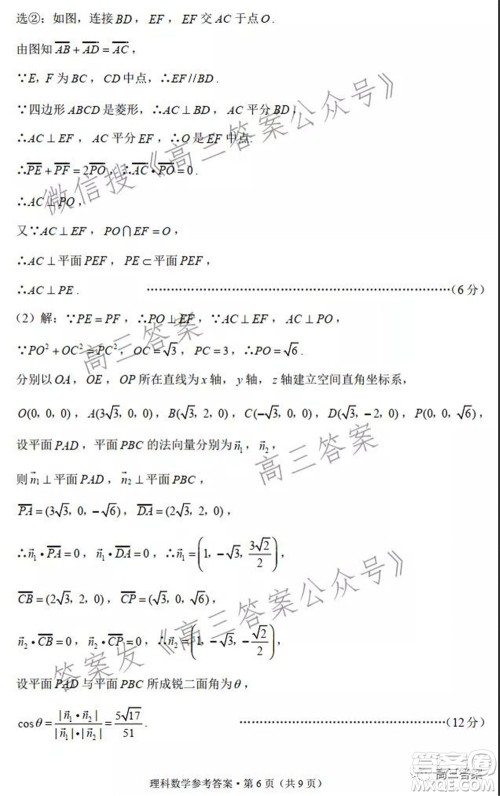 选②：如图，连接 BD，EF，EF 交 AC 于点 O．
由图知 \overline{AB}+\overline{AD}=\overline{AC}，
∵E，F 为 BC，CD 中点，∴EF//BD．
∵四边形 ABCD 是菱形，∴AC⊥BD，AC 平分 BD，
∴AC⊥EF，AC 平分 EF，∴O 是 EF 中点．
∴\overline{PE}+\overline{PF}=2\overline{PO}，∴\overline{AC}•\overline{PO}=0．
∴AC⊥PO，
又∵AC⊥EF，PO∩EF=O，
∴AC⊥平面 PEF，PE⊂平面 PEF，
∴AC⊥PE．…………………………（6 分）
（2）解：∵PE=PF，∴PO⊥EF，∵AC⊥EF，AC⊥PO，
∵PO²+OC²=PC²，OC=√3，PC=3，∴PO=√6．
分别以 OA，OE，OP 所在直线为 x 轴，y 轴，z 轴建立空间直角坐标系，
O(0, 0, 0)，A(3√3, 0, 0)，B(√3, 2, 0)，C(-√3, 0, 0)，D(√3, -2, 0)，P(0, 0, √6)，
设平面 PAD，平面 PBC 的法向量分别为 \vec{n}₁，\vec{n}₂，
则 \vec{n}₁⊥平面 PAD，\vec{n}₂⊥平面 PBC，
\overline{PA}=(3√3, 0, -√6)，\overline{DA}=(2√3, 2, 0)，
∴\vec{n}₁•\overline{PA}=0，\vec{n}₁•\overline{DA}=0，∴\vec{n}₁=(1, -√3, 3√2/2)，
\overline{CB}=(2√3, 2, 0)，\overline{CP}=(√3, 0, √6)，
\vec{n}₂•\overline{CB}=0，\vec{n}₂•\overline{CP}=0，∴\vec{n}₂=(1, -√3, -√2/2)，
设平面 PAD 与平面 PBC 所成锐二面角为 θ，
cosθ=|\vec{n}₁•\vec{n}₂|/(|\vec{n}₁|•|\vec{n}₂|)=5√17/51．…………………………（12 分）
理科数学参考答案•第 6 页（共 9 页）
微信搜《高三答案公众号》
高三答案
高三答案
答案发《高三答案公众号》
高三答案